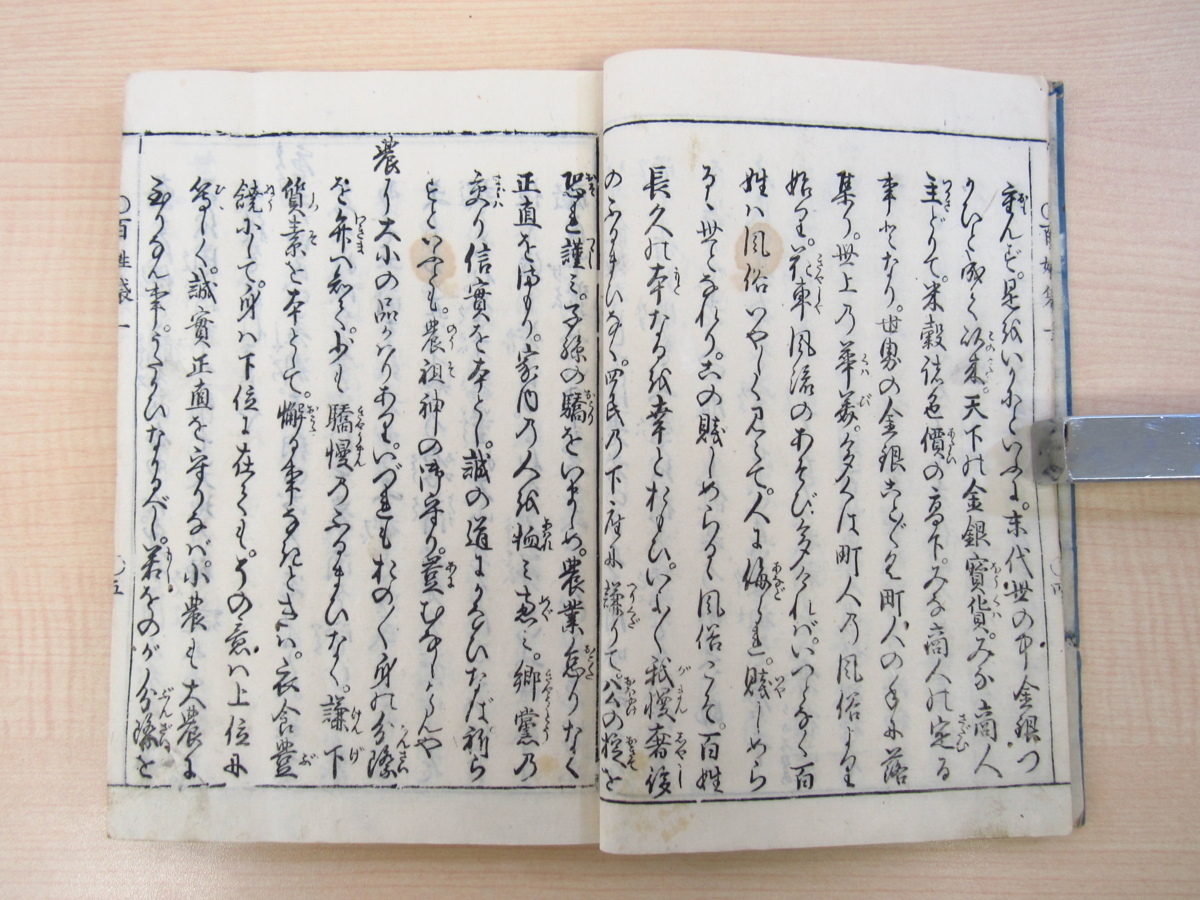 重んず。是をいかにといふに。末代世の中金銀つ
かひと成てより以来。天下の金銀寳貨。みな商人
主どりて。米穀諸色價の高下。みな商人の定る
事となり。世界の金銀ことごとく町人の手に落
集り。世上の華美。多くは町人の風俗より
始り。花車風流のあそび多ければ。いつとなく百
姓ハ風俗いやしく見えて。人に侮られ。賤しめら
るゝ世となれり。この賤しめらるゝ風俗こそ。百姓
長久の本なるを幸とおもひ。いよ〳〵我慢奢侈
のふるまひなく。四民の下座に謙りて。公の掟を
恐れ謹ミ。子孫の驕をいましめ。農業怠りなく
正直を守り。家内の人を恤ミ恵ミ。郷黨の
交り信實を本とし。誠の道にかなひなば祈ら
ずといへども。農祖神の御守り。豈むなしからんや
農に大小の品かハりあり。いづれもおの〳〵身の分際
を弁へ知て。少も驕慢のふるまひなく。謙下
質素を本として。懈る事なきときハ。衣食豊
饒にして。身ハ下位に在ても。その意ハ上位に
等しく。誠實正直を守りなバ。小農も大農に
至りなん事。うたがひなかるべし。若をのが分際を
○百姓袋一
○五